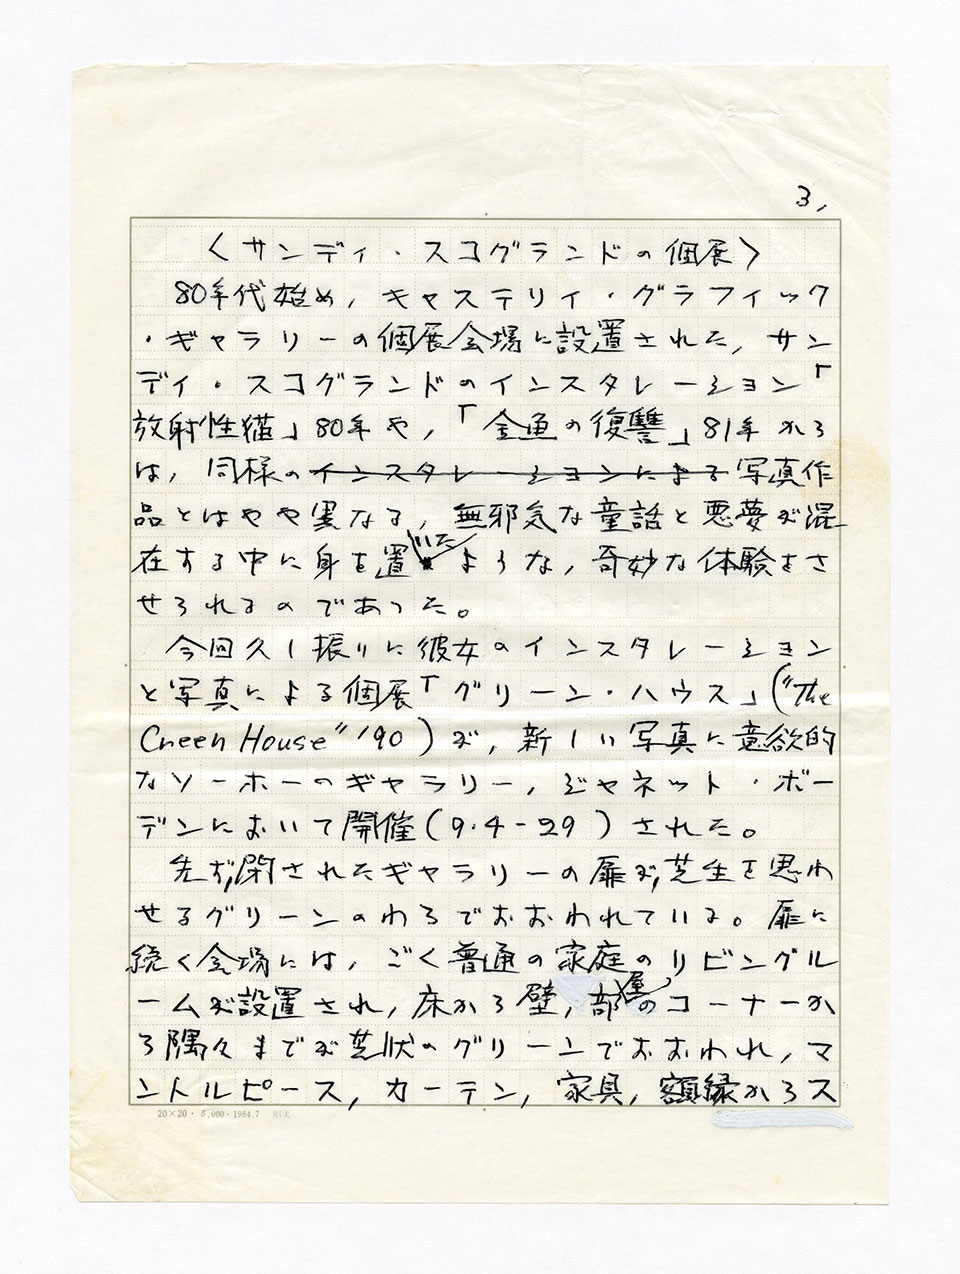 3,
〈サンディ・スコグランドの個展〉
80年代始め，キャステリィ・グラフィック
・ギャラリーの個展会場に設置された，サン
ディ・スコグランドのインスタレーション「
放射性猫」80年や，「金魚の復讐」81年から
は，同様のインスタレーションによる写真作
品とはやや異なる，無邪気な童話と悪夢が混
在する中に身を置いたような，奇妙な体験をさ
せられるのであった。
今回久し振りに彼女のインスタレーション
と写真による個展「グリーン・ハウス」("The
Green House" '90)が，新しい写真に意欲的
なソーホーのギャラリー，ジャネット・ボー
デンにおいて開催(9.4-29)された。
先ず,閉されたギャラリーの扉が,芝生を思わ
せるグリーンのわらでおおわれている。扉に
続く会場には，ごく普通の家庭のリビングル
ームが設置され，床から壁，部屋のコーナーか
ら隅々までが芝状のグリーンでおおわれ，マ
ントルピース，カーテン，家具，額縁からス
20×20・5,000・1984.7 昭美